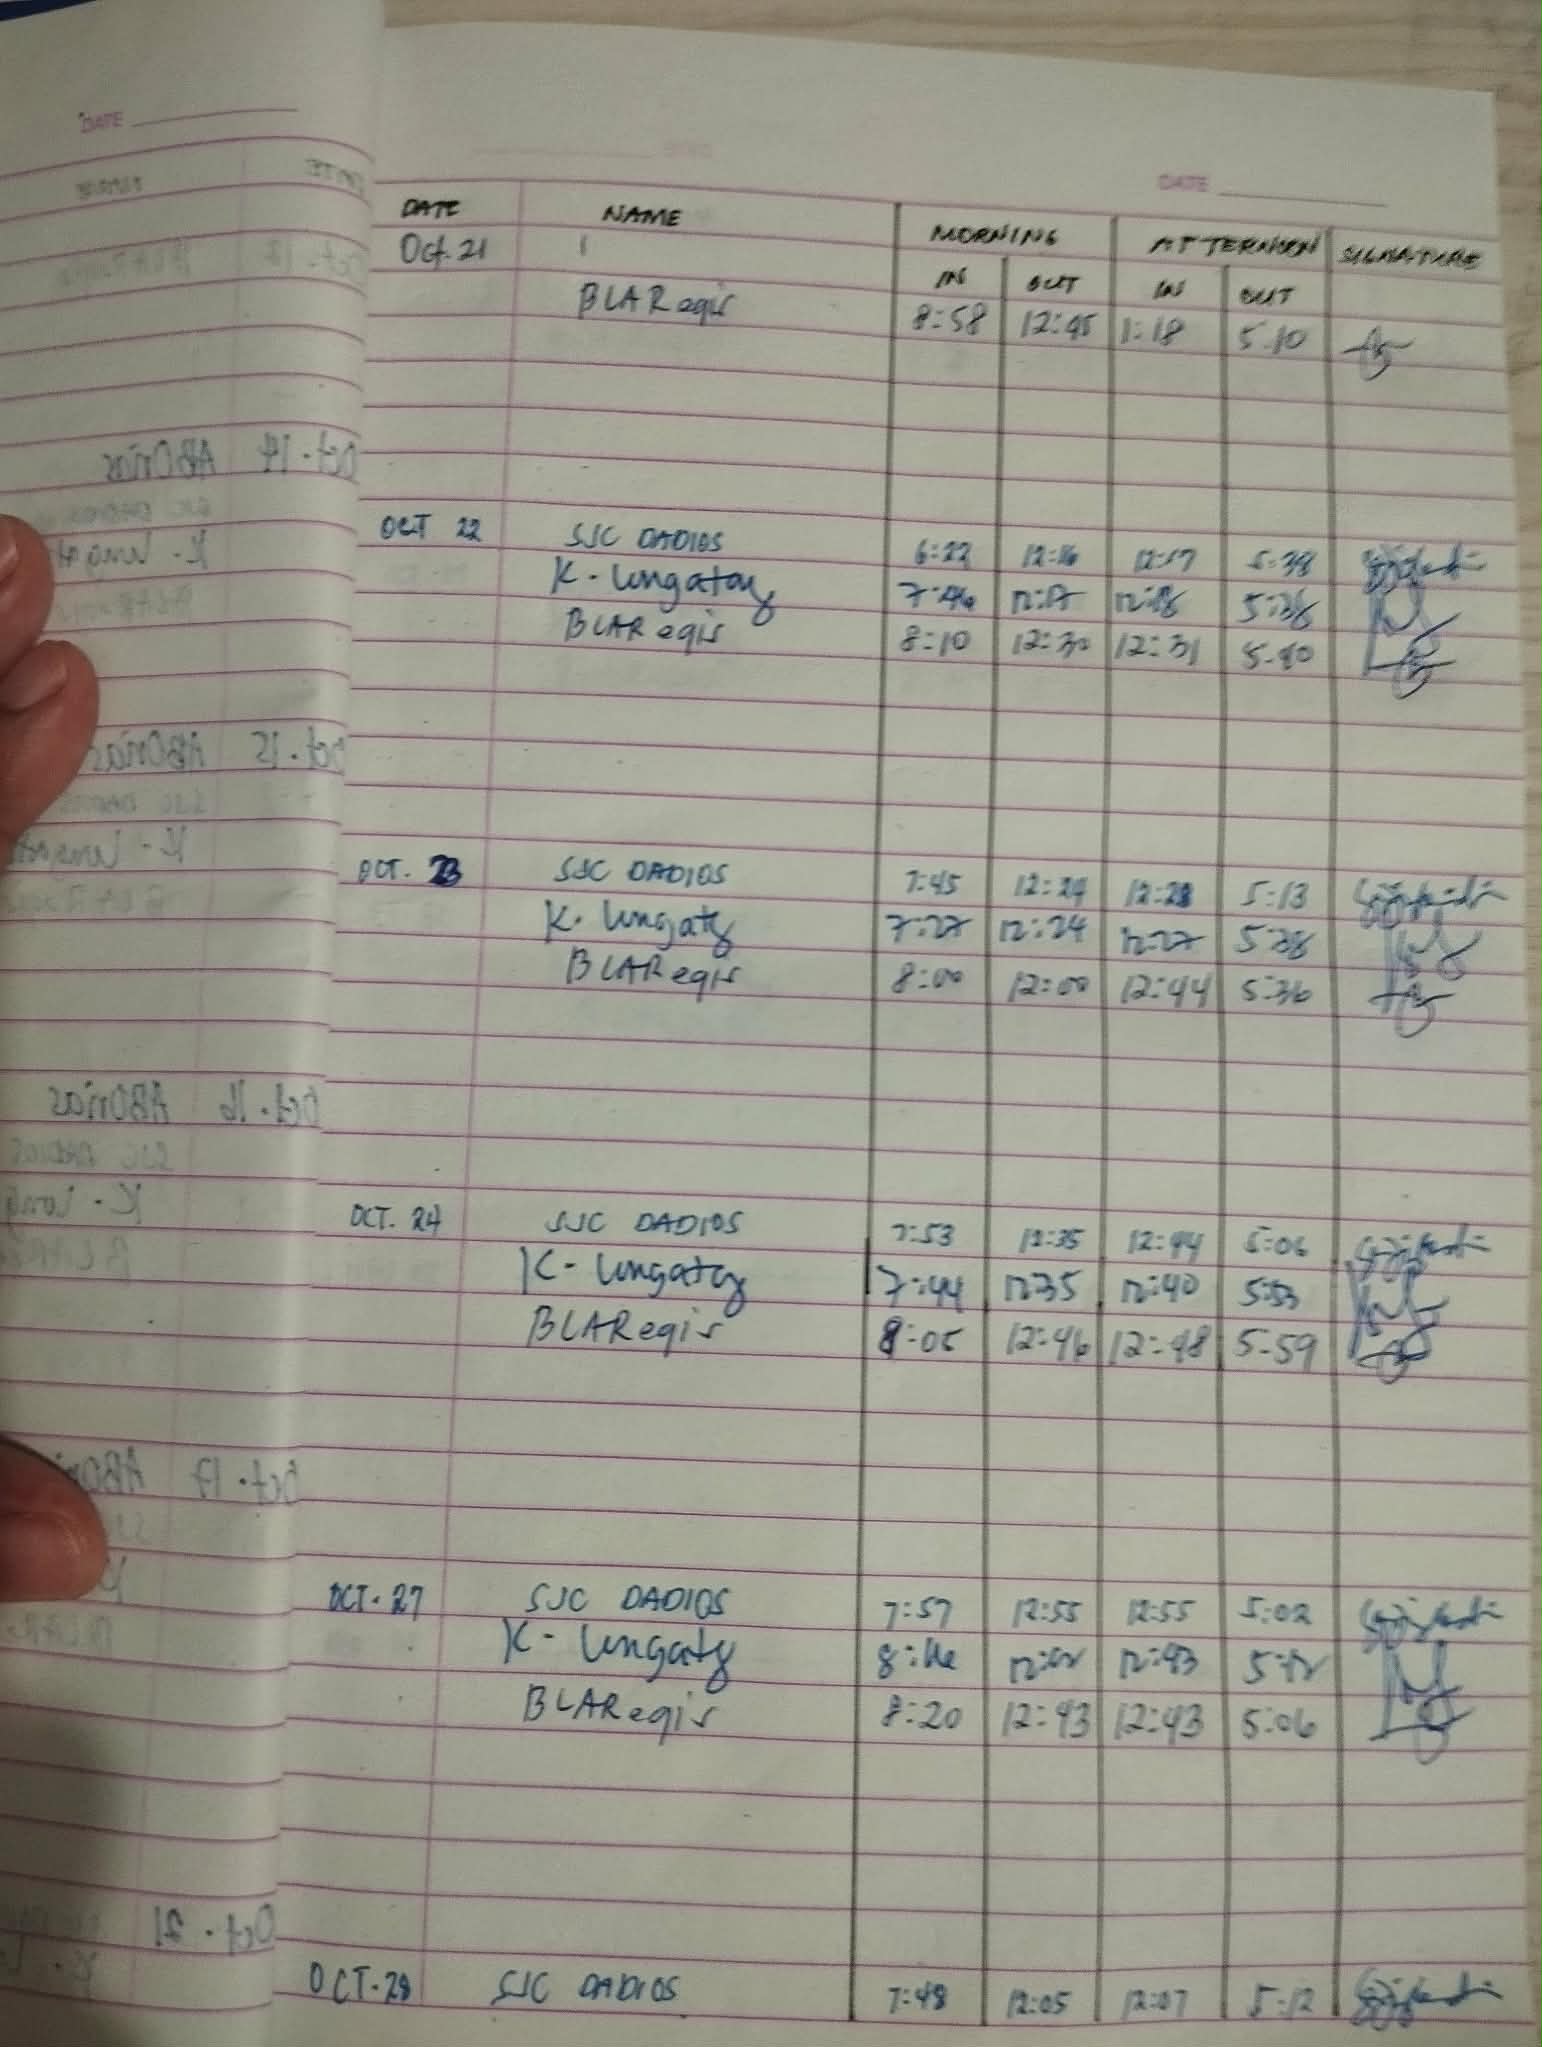 DATE
DATE
DATE NAME MORNING AFTERNOON SIGNATURE
Oct. 21 IN OUT IN OUT
BLARegis 8:58 12:45 1:18 5:10
OCT 22 SJC DADIOS 6:22 12:16 12:17 5:38
K. Lungatoy 7:46 12:17 12:18 5:38
BLARegis 8:10 12:30 12:31 5:40
OCT. 23 SJC DADIOS 7:45 12:24 12:28 5:13
K. Lungaty 7:27 12:24 12:27 5:38
BLARegis 8:00 12:00 12:44 5:36
OCT. 24 SJC DADIOS 7:53 12:35 12:44 5:06
K- Lungatoy 7:44 12:35 12:40 5:53
BLARegis 8:05 12:46 12:48 5:59
OCT. 27 SJC DADIOS 7:57 12:55 12:55 5:02
K- Lungaty 12:42 12:43 5:12
BLARegis 8:20 12:43 12:43 5:06
OCT. 28 SJC DADIOS 7:48 12:05 12:07 5:12